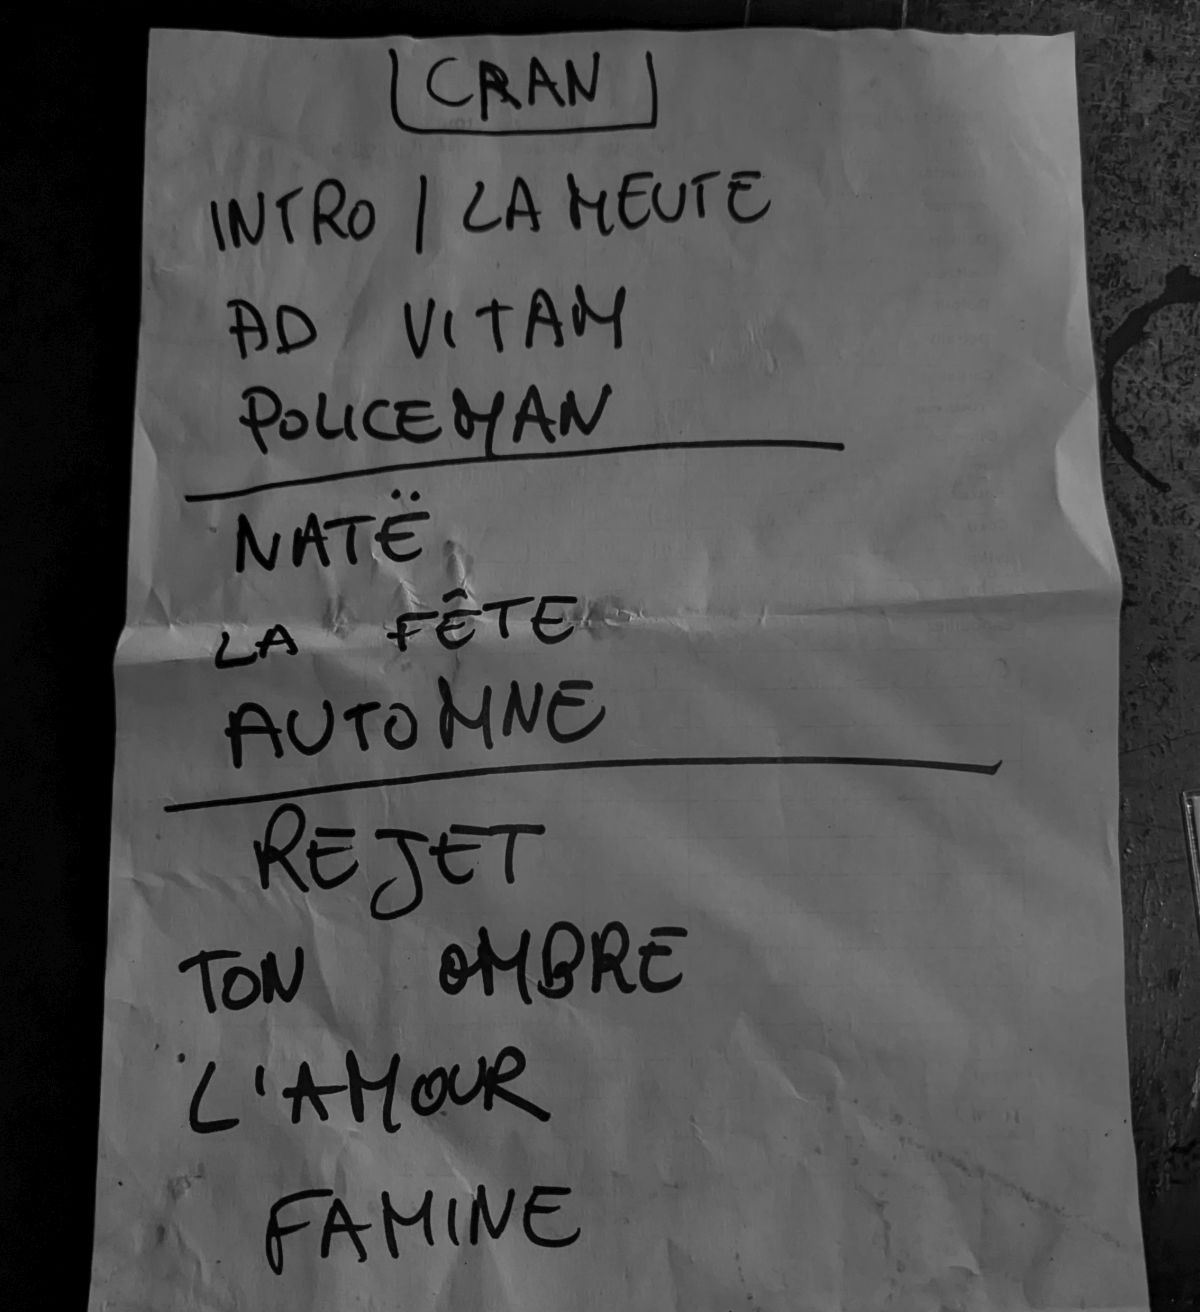 CRAN
INTRO / LA MEUTE
AD VITAM
POLICEMAN
NATË
LA FÊTE
AUTOMNE
REJET
TON OMBRE
L'AMOUR
FAMINE